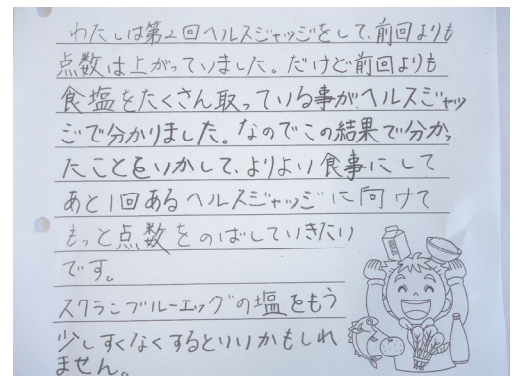 わたしは第2回ヘルスジャッジをして、前回よりも
点数は上がっていました。だけど前回よりも
食塩をたくさん取っている事がヘルスジャッ
ジで分かりました。なのでこの結果で分かっ
たことをいかして、よりよい食事にして
あと1回あるヘルスジャッジに向けて
もっと点数をのばしていきたい
です。
スクランブルーエッグの塩をもう
少しすくなくするといいかもしれ
ません。